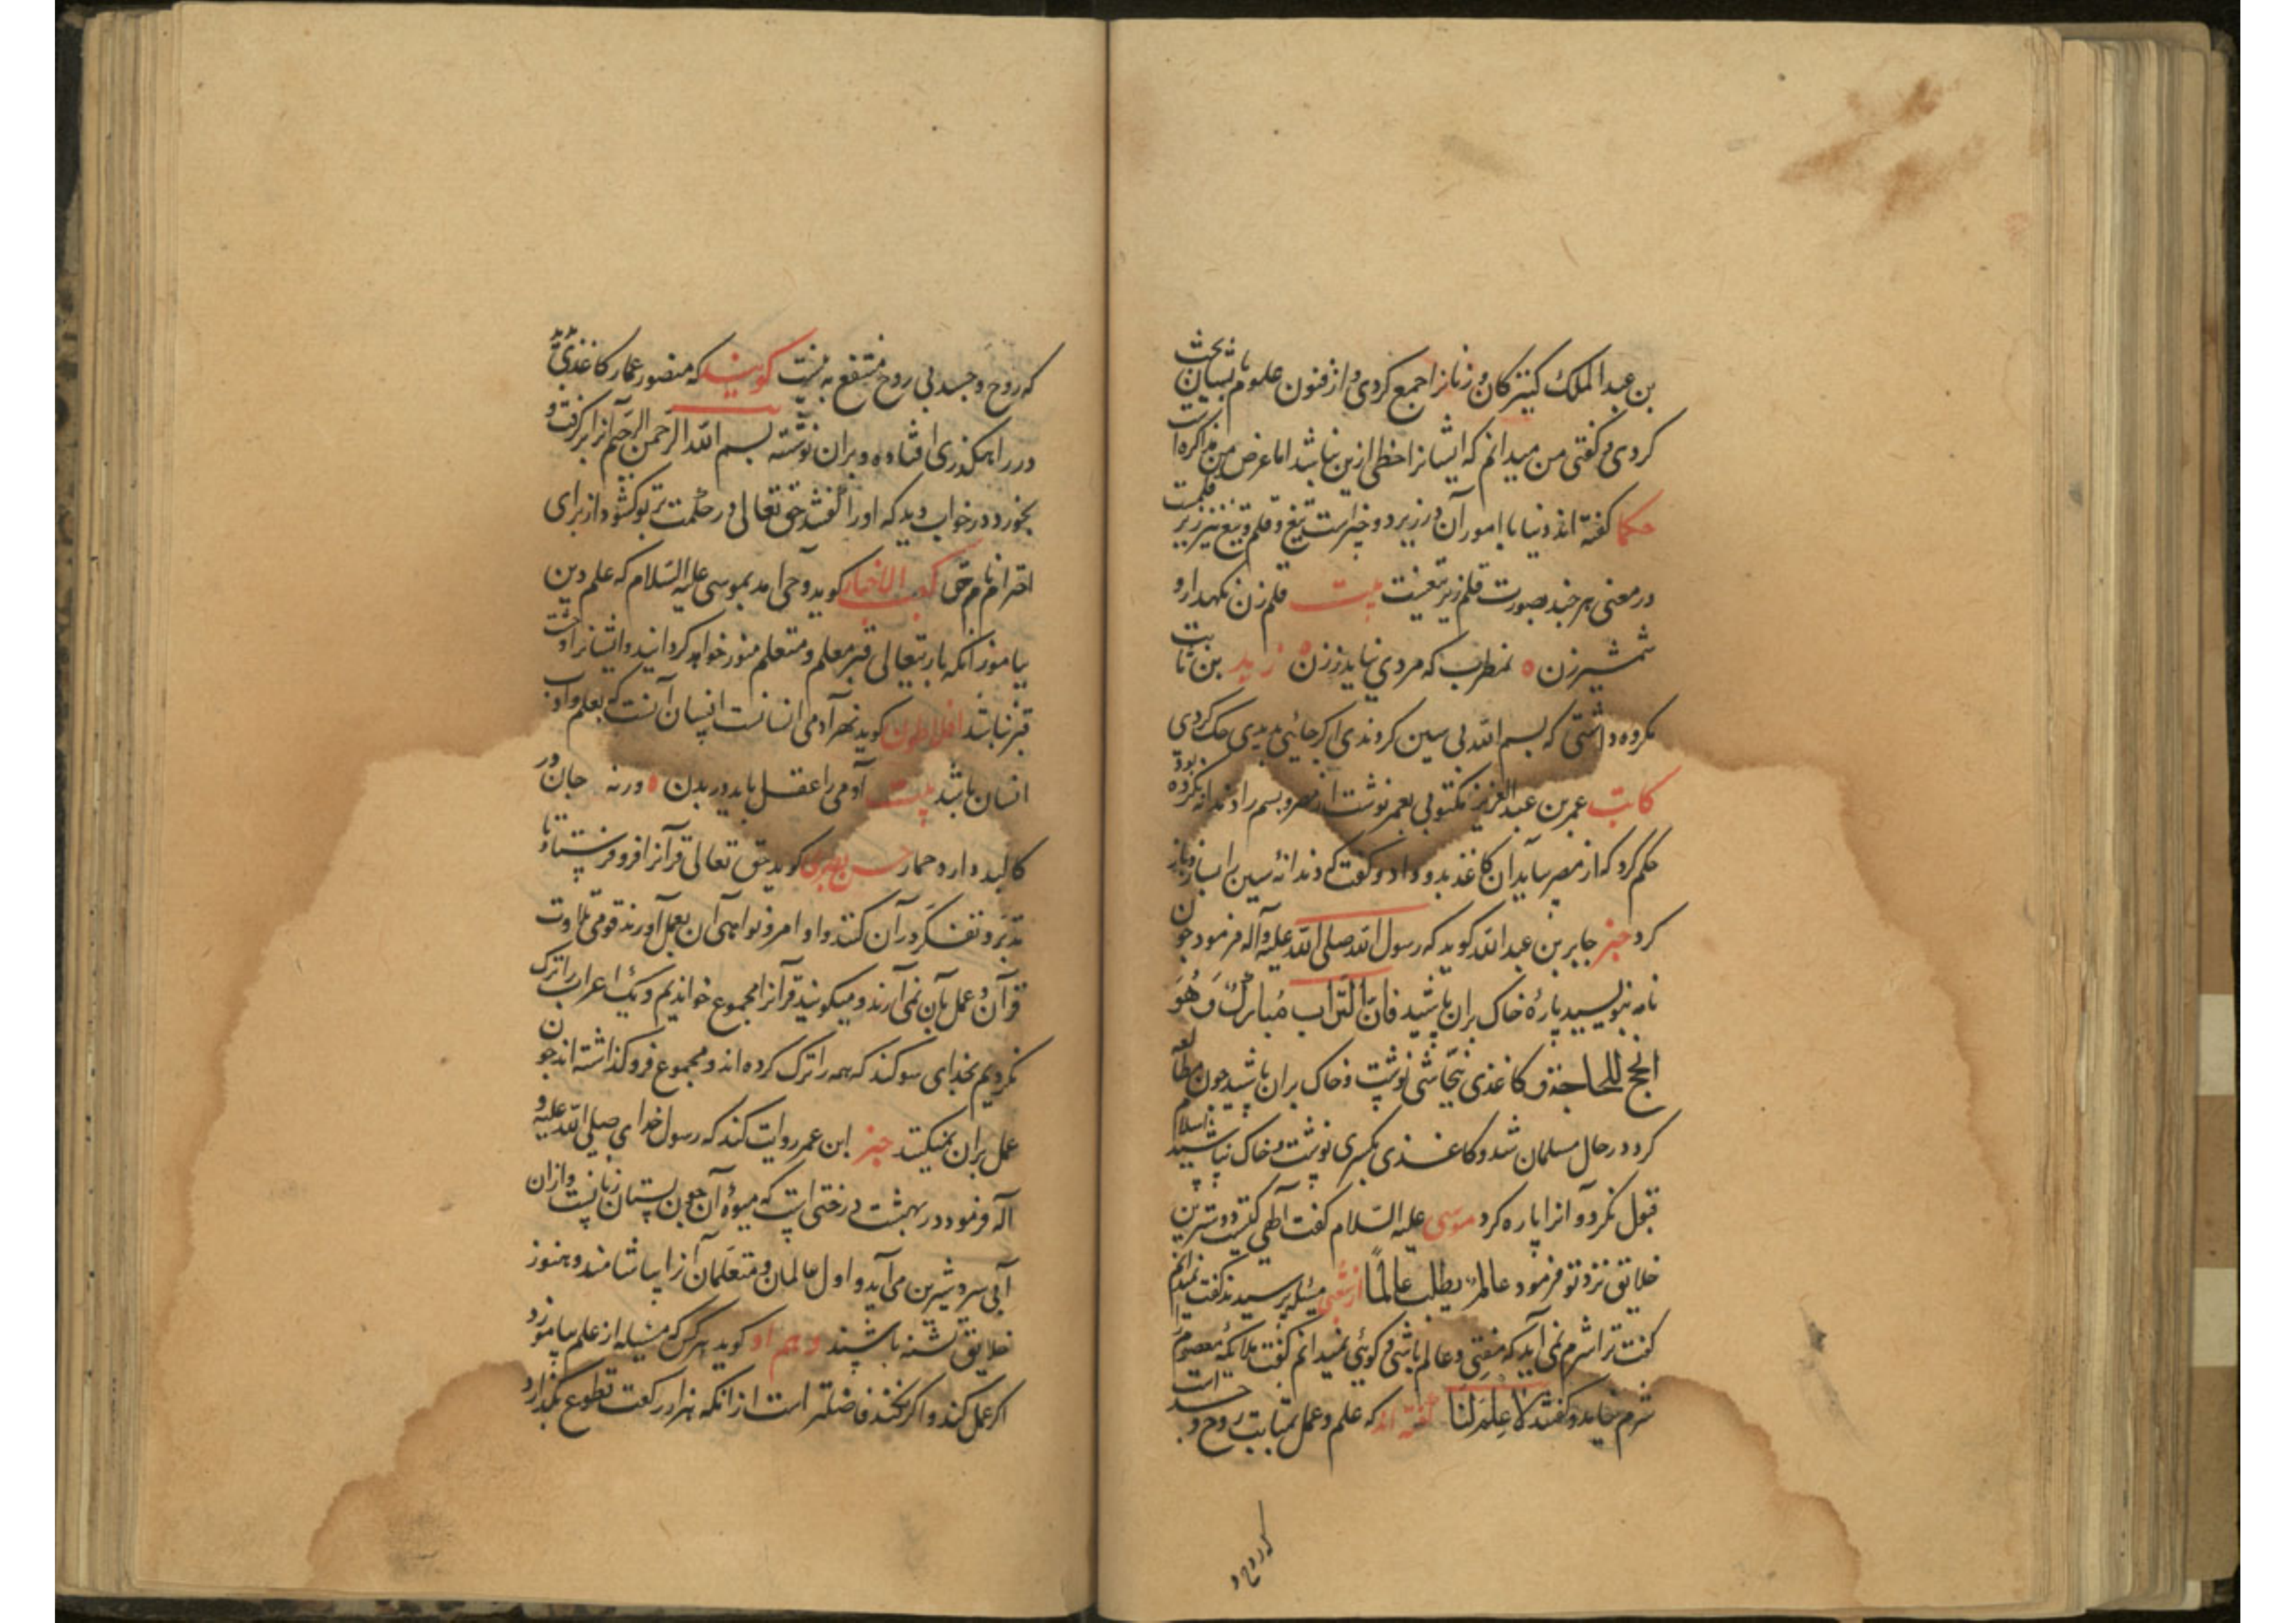 بن عبد الملک کنیزکان و زنانرا جمع کردی و از فنون علوم با ایشان بحث
کردی و گفتی من میدانم که ایشانرا حظی ازین نباشد اما غرض من مذاکره است
حکما گفته اند دنیا با امور آن در زیر دو چیز است تیغ و قلم و تیغ نیز زیر قلمست
در معنی هر چند بصورت قلم زیر تیغست بیت قلم زن نکهدار و
شمشیر زن ه نه مطرب که مردی نیاید ز زن ه زید بن ثابت
مکروه داشتی که بسم الله بی سین کردندی اکر جائی بدیدی حک کردی
کاتب عمر بن عبد العزیز مکتوبی بعمر نوشت از مصر و بسم را دندانه نکرده بود
حکم کرد که از مصر بیاید آن کاغذ بدو داد و گفت که دندانۀ سین را بساز و باز
کرد خبر جابر بن عبد الله کوید که رسول الله صلی الله علیه و آله فرمود چون
نامه بنویسید پارۀ خاک بران پاشید فان التراب مبارک و هو
انجح للحاجة و کاغذی بنجاشی نوشت و خاک بران پاشید چون مطالعه
کرد در حال مسلمان شد و کاغذی بکسری نوشت و خاک نپاشید اسلام
قبول نکرد و آنرا پاره کرد موسی علیه السلام گفت الهی کیست دوسترین
خلایق نزد تو فرمود عالم یطلب عالماً از شعبی مسئله پرسیدند گفت نمیدانم
گفت ترا شرم نمی آید که مفتی و عالم باشی و کوئی نمیدانم گفت ملائکۀ معصوم را
شرم نیاید و گفتند لا علم لنا گفته اند که علم و عمل بمثابت روح و جسد است
که روح و
که روح و جسد بی روح منتفع به نیست کویند که منصور عمار کاغذی دید
در راهکذری افتاده و بران نوشته بسم الله الرحمن الرحیم آنرا برکرفت و
بخورد در خواب دید که او را گفتند حق تعالی در حکمت بر تو کشود از برای
احترام نام حق کعب الاخبار کوید وحی امد بموسی علیه السلام که علم دین
بیاموز انکه باریتعالی قبر معلم و متعلم منور خواهد کردانید و ایشانرا وحشت
قبر نباشد افلاطون کوید نه هر آدمی انسانست انسان آنست که بعلم و ادب
انسان باشد بیت آدمی را عقل باید در بدن ه ورنه جان در
کالبد دارد حمار حسن بصری کوید حق تعالی قرآنرا فرو فرستاد تا
تدبر و تفکر در آن کنند و اوامر و نواهی آن بعمل آورند قومی تلاوت
قرآن و عمل بآن نمی آرند و میکویند قرآنرا مجموع خواندیم و یک اعراب را ترک
نکردیم بخدای سوکند که همه را ترک کرده اند و مجموع فرو کذاشته اند چون
عمل بران نمیکنند خبر ابن عمر روایت کند که رسول خدای صلی الله علیه و
آله فرمود در بهشت درختی است که میوۀ آن چون پستان زنانست و ازان
آبی سرد شیرین می آید و اول عالمان و متعلمان آنرا بیاشامند و هنوز
خلایق تشنه باشند و هم او کوید هر کس که مسئله از علم بیاموزد
اکر عمل کند و اکر نکند فاضلتر است از انکه هزار رکعت تطوع بکذارد